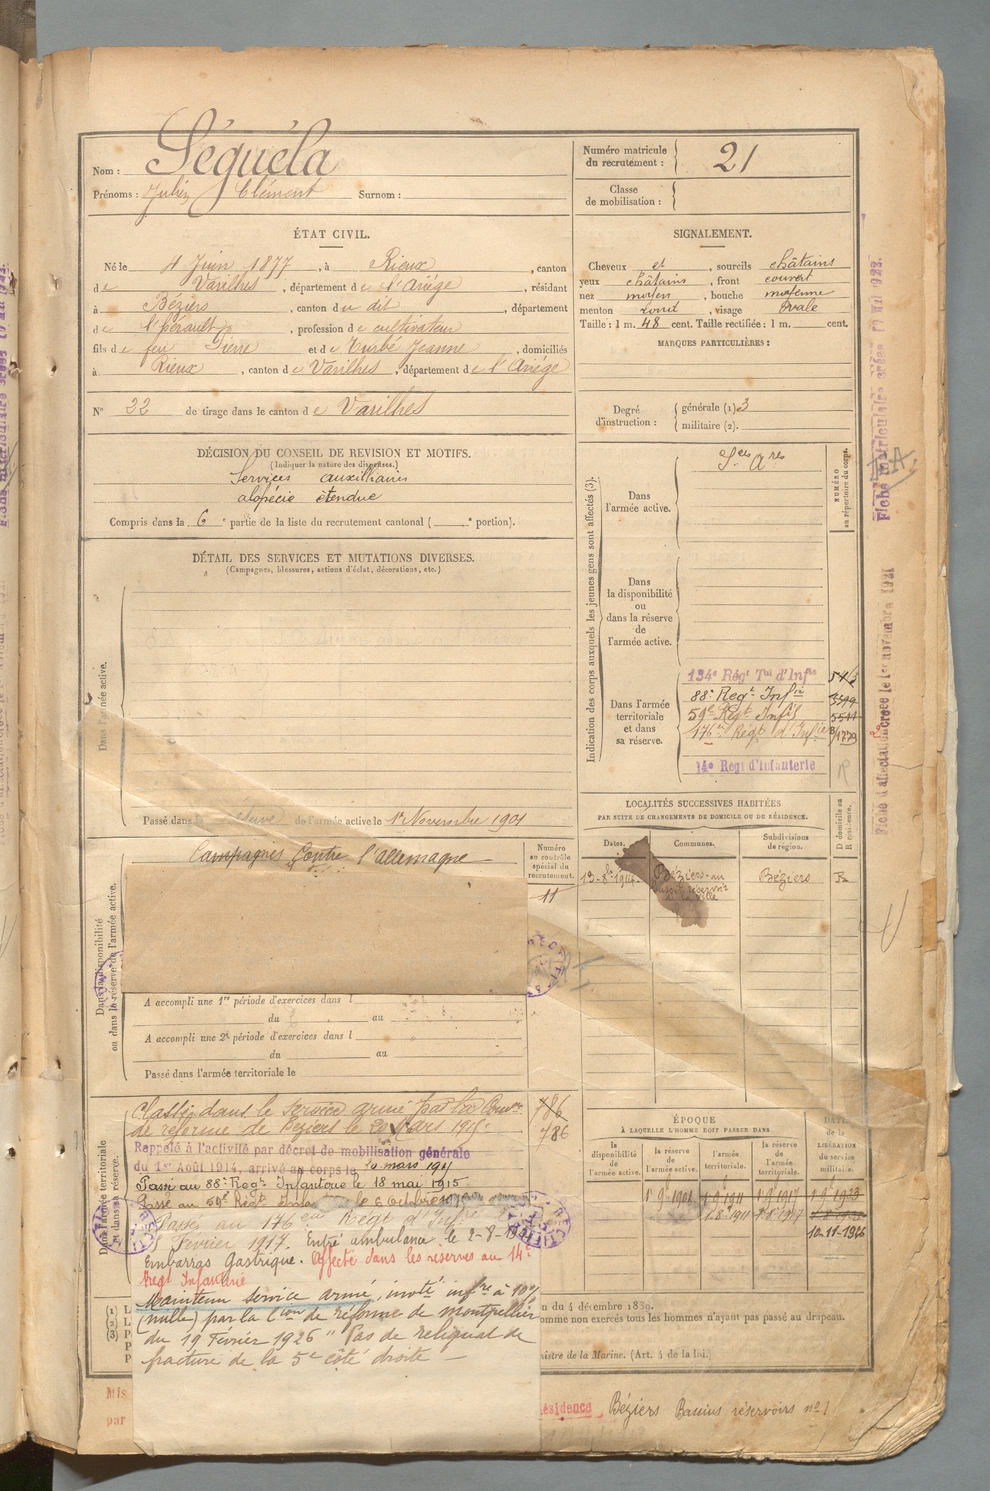 Nom : Séguéla
Prénoms : Julien Clément Surnom :
Numéro matricule du recrutement : 21
Classe de mobilisation :
ÉTAT CIVIL.
Né le 4 Juin 1877, à Rieux, canton
de Varilhes, département de l'Ariége, résidant
à Béziers, canton du dit, département
de l'hérault, profession de cultivateur
fils de feu Pierre et de Turbé Jeanne, domiciliés
à Rieux, canton de Varilhes, département de l'Ariége
N° 22 de tirage dans le canton de Varilhes
SIGNALEMENT.
Cheveux et, sourcils châtains
yeux châtains, front couvert
nez moyen, bouche moyenne
menton rond, visage Ovale
Taille : 1 m. 48 cent. Taille rectifiée : 1 m. cent.
MARQUES PARTICULIÈRES :
Degré d'instruction : générale (1) 3
militaire (2).
DÉCISION DU CONSEIL DE REVISION ET MOTIFS.
(Indiquer la nature des dispenses.)
Services auxiliaires
alopécie étendue
Compris dans la 6e partie de la liste du recrutement cantonal ( e portion).
DÉTAIL DES SERVICES ET MUTATIONS DIVERSES.
(Campagnes, blessures, actions d'éclat, décorations, etc.)
Dans l'armée active.
Passé dans la réserve de l'armée active le 1er Novembre 1901
Indication des corps auxquels les jeunes gens sont affectés (3).
NUMÉRO au répertoire du corps.
Dans l'armée active.
Sces Ares
Dans la disponibilité ou dans la réserve de l'armée active.
Dans l'armée territoriale et dans sa réserve.
134e Régt Tal d'Infie
88e Regt Infrie
3599
59e Regt Infie
5511
176e Régt d'Infie
14e Regt d'Infanterie
Fiche matriculaire créée
Fiche d'affectation créée le 1er novembre 1921
LOCALITÉS SUCCESSIVES HABITÉES
PAR SUITE DE CHANGEMENTS DE DOMICILE OU DE RÉSIDENCE.
Dates. Communes. Subdivisions de région. D domicile ou R résidence.
13-8-1914 Béziers au Béziers R
Dans la disponibilité ou dans la réserve de l'armée active.
Campagnes Contre l'allemagne
Numéro au contrôle spécial du recrutement.
11
A accompli une 1re période d'exercices dans l
du au
A accompli une 2e période d'exercices dans l
du au
Passé dans l'armée territoriale le
Dans l'armée territoriale et dans sa réserve.
Classé dans le service armé par la Comon
de réforme de Béziers le 20 Mars 1915
786
786
Rappelé à l'activité par décret de mobilisation générale
du 1er Août 1914, arrivé au corps le
Passé au 88e Regt Infanterie le 18 mai 1915
Passé au 59e Régt Infie le 6 Octobre 1915
Passé au 176eme Régt d'Infrie le
Fevrier 1917. Entré ambulance le 2-8-
Embarras Gastrique. Affecté dans les reserves au 14e
Regt Infanterie
Maintenu service armé, invté infre à 10%
(nulle) par la Cion de réforme de montpellier
du 19 Février 1926 " Pas de reliquat de
fracture de la 5e côté droite —
ÉPOQUE
À LAQUELLE L'HOMME DOIT PASSER DANS
la disponibilité de l'armée active. la réserve de l'armée active. l'armée territoriale. la réserve de l'armée territoriale. DATE de la LIBÉRATION du service militaire.
1er 9bre 1901 1er 9bre 1911 1er 9bre 1917 1er 9bre 1923
10-11-1926
n du 4 décembre 1889.
omme non exercés tous les hommes n'ayant pas passé au drapeau.
nistre de la Marine. (Art. 4 de la loi.)
Mis
par
Résidence Béziers Bassins réservoirs no 1